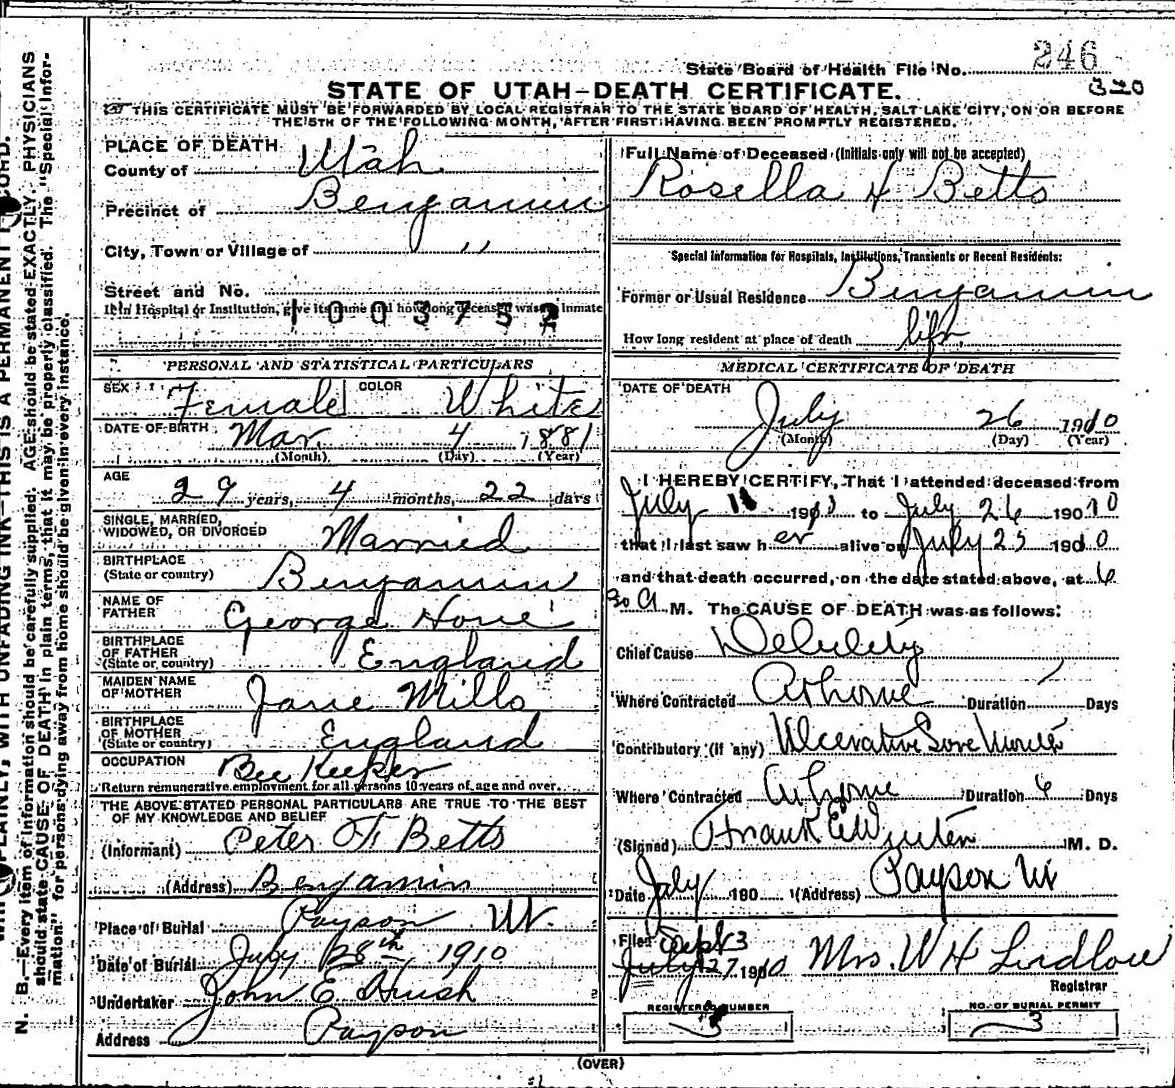 State Board of Health File No. 246
320
STATE OF UTAH—DEATH CERTIFICATE.
THIS CERTIFICATE MUST BE FORWARDED BY LOCAL REGISTRAR TO THE STATE BOARD OF HEALTH, SALT LAKE CITY, ON OR BEFORE
THE 5TH OF THE FOLLOWING MONTH, AFTER FIRST HAVING BEEN PROMPTLY REGISTERED.
PLACE OF DEATH
County of Utah
Precinct of Benjamin
City, Town or Village of "
Street and No.
If in Hospital or Institution, give its name and how long deceased was an inmate
1003752
PERSONAL AND STATISTICAL PARTICULARS
SEX Female COLOR White
DATE OF BIRTH Mar. 4 1881
(Month) (Day) (Year)
AGE
29 years, 4 months, 22 days
SINGLE, MARRIED,
WIDOWED, OR DIVORCED Married
BIRTHPLACE
(State or country) Benjamin
NAME OF
FATHER George Hone
BIRTHPLACE
OF FATHER
(State or country) England
MAIDEN NAME
OF MOTHER Jane Mills
BIRTHPLACE
OF MOTHER
(State or country) England
OCCUPATION Bee Keeper
Return remunerative employment for all persons 10 years of age and over.
THE ABOVE STATED PERSONAL PARTICULARS ARE TRUE TO THE BEST
OF MY KNOWLEDGE AND BELIEF
(Informant) Peter F Betts
(Address) Benjamin
Place of Burial Payson Ut.
Date of Burial July 28th, 1910
Undertaker John E Huish
Address Payson
Full Name of Deceased (Initials only will not be accepted)
Rosella H Betts
Special Information for Hospitals, Institutions, Transients or Recent Residents:
Former or Usual Residence Benjamin
How long resident at place of death life
MEDICAL CERTIFICATE OF DEATH
DATE OF DEATH
July 26 1910
(Month) (Day) (Year)
I HEREBY CERTIFY, That I attended deceased from
July 190 to July 26 19010
that I last saw her alive on July 25 19010
and that death occurred, on the date stated above, at 6
30 A M. The CAUSE OF DEATH was as follows:
Chief Cause Debility
Where Contracted At home Duration Days
Contributory (if any) Ulcerative Sore Mouth
Where Contracted At home Duration 6 Days
(Signed) Frank E Winten M. D.
Date July 190 (Address) Payson Ut
Filed Sept 3
July 27 1910 Mrs. W H Ludlow
Registrar
REGISTERED NUMBER
3
NO. OF BURIAL PERMIT
3
(OVER)
PLAINLY, WITH UNFADING INK—THIS IS A PERMANENT RECORD.
N. B.—Every item of information should be carefully supplied. AGE should be stated EXACTLY. PHYSICIANS
should state CAUSE OF DEATH in plain terms, that it may be properly classified. The "Special Infor-
mation" for persons dying away from home should be given in every instance.